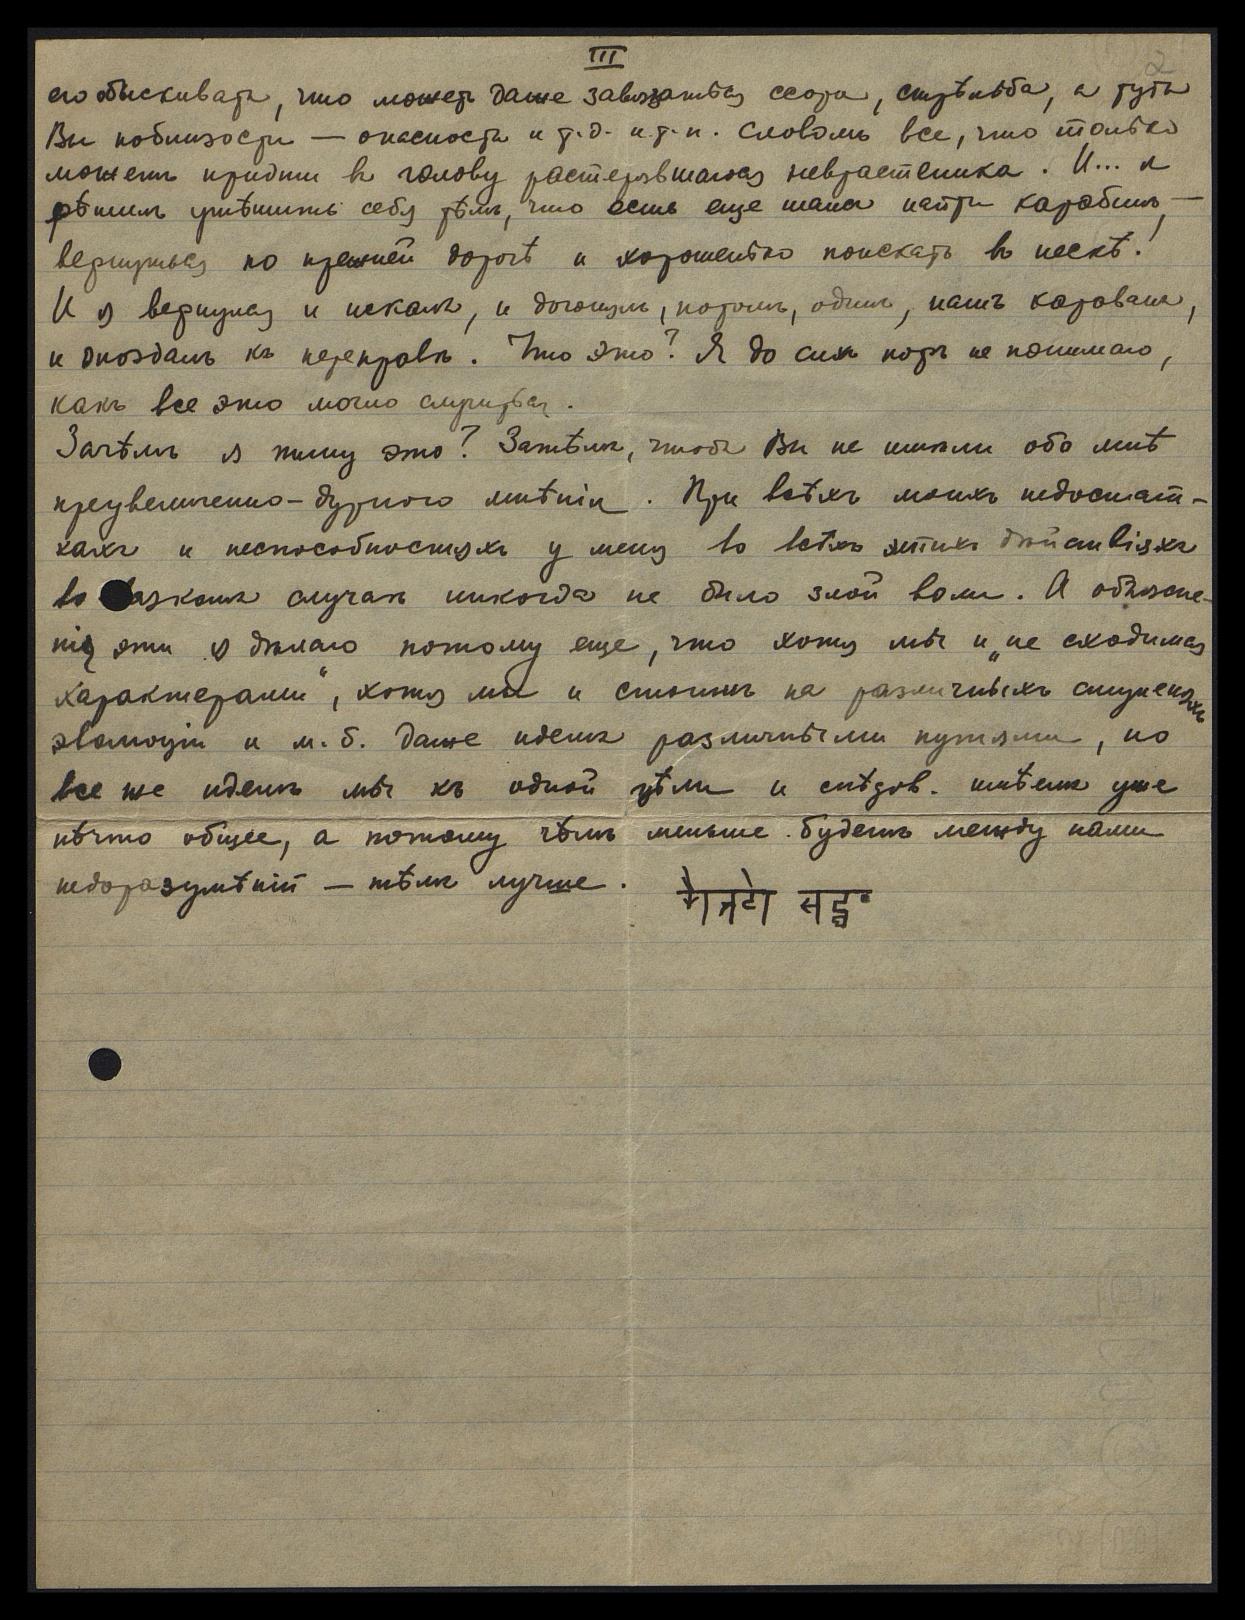 III
его обыскивать, что можетъ даже завязаться ссора, стрѣльба, а тутъ
Вы поблизости — опасность и т.д. и т.п. Словомъ все, что только
можетъ придти въ голову растерявшагося неврастеника. И... я
рѣшилъ утѣшить себя тѣмъ, что есть еще шансъ найти карабинъ, —
вернуться по прежней дорогѣ и хорошенько поискать въ пескѣ!
И я вернулся и искалъ, и догонялъ, потомъ, одинъ, нашъ караванъ,
и опоздалъ къ переправѣ. Что это? Я до сихъ поръ не понимаю,
какъ все это могло случиться.
Зачѣмъ я пишу это? Затѣмъ, чтобы Вы не имѣли обо мнѣ
преувеличенно-дурного мнѣнія. При всѣхъ моихъ недостат-
кахъ и неспособностяхъ у меня во всѣхъ этихъ дѣйствіяхъ
во всякомъ случаѣ никогда не было злой воли. А объясне-
нія эти я дѣлаю потому еще, что хотя мы и „не сходимся
характерами“, хотя мы и стоимъ на различныхъ ступеняхъ
эволюціи и м.б. даже идемъ различными путями, но
все же идемъ мы къ одной цѣли и слѣдов. имѣемъ уже
нѣчто общее, а потому чѣмъ меньше будетъ между нами
недоразумѣній — тѣмъ лучше.